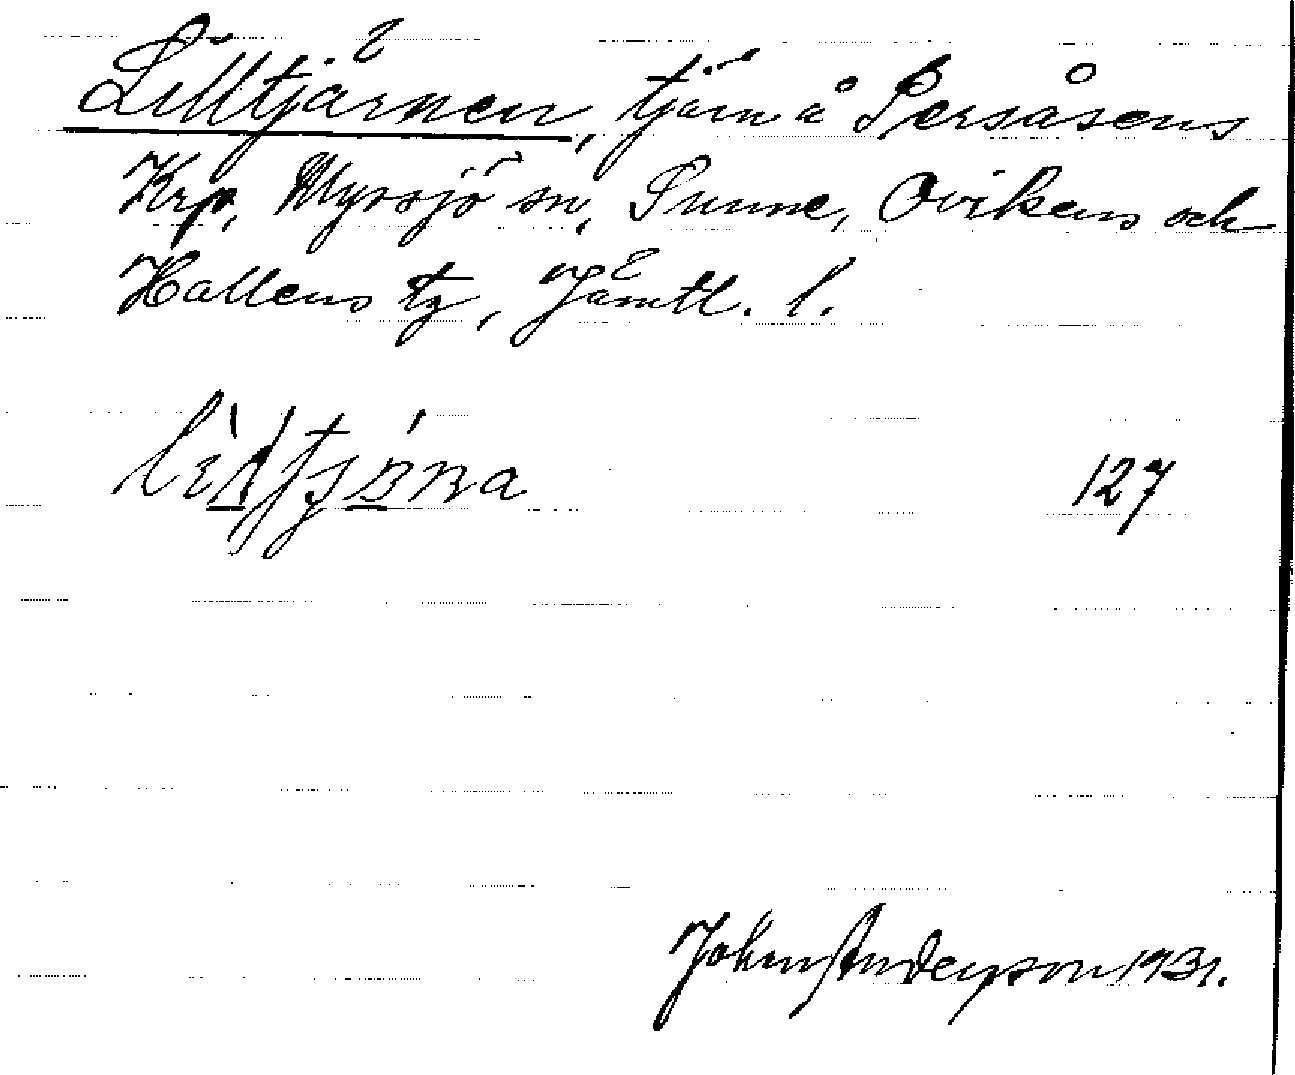 Lilltjärnen, tjärn å Persåsens
Krp, Myssjö sn, Sunne, Ovikens och
Hallens tg, Jämtl. l.
127
John Anderson 1931.